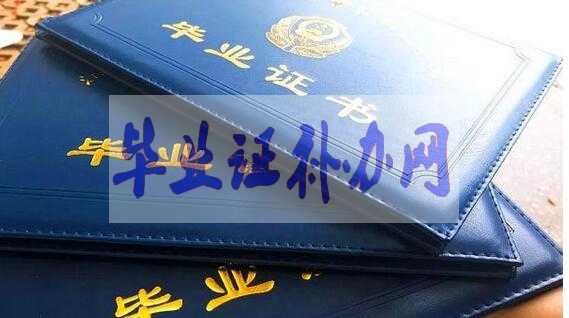 毕业证书
毕业
毕业证补办网
毕业